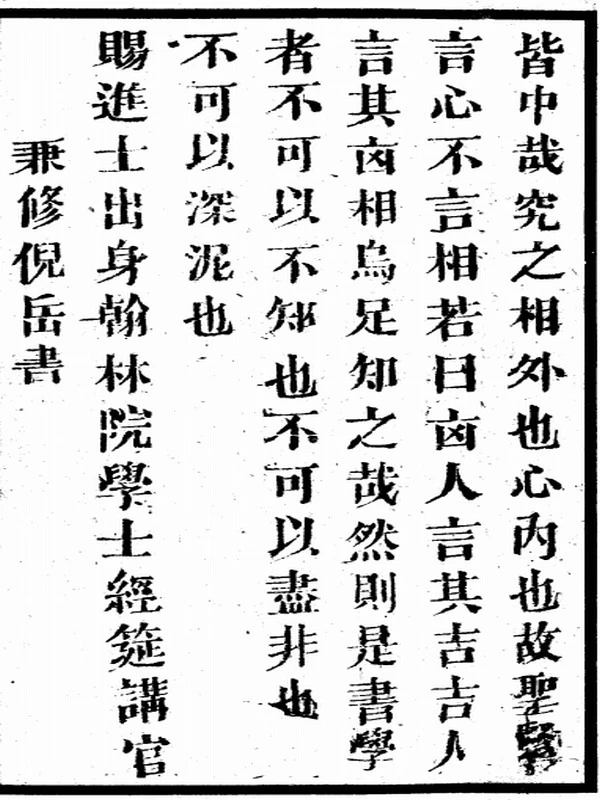 皆中哉究之相外也心內也故聖賢
言心不言相若曰凶人言其吉吉人
言其凶相烏足知之哉然則是書學
者不可以不知也不可以盡非也
不可以深泥也
賜進士出身翰林院學士經筵講官
兼修倪岳書